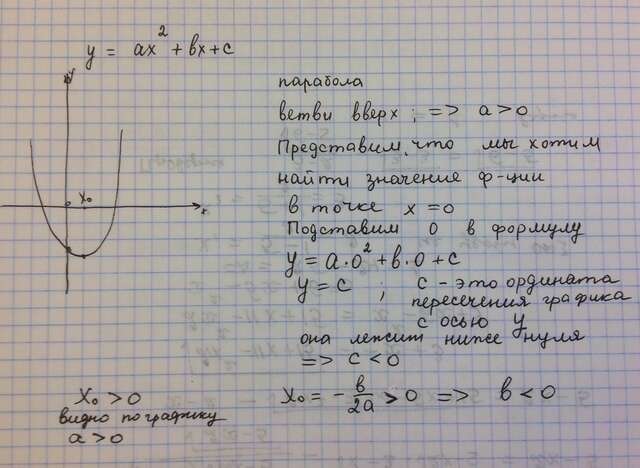 y = ax² + bx + c
y
x₀
x
парабола
ветви вверх ; => a > 0
Представим, что мы хотим
найти значение ф-ции
в точке x = 0
Подставим 0 в формулу
y = a·0² + b·0 + c
y = c ; c - это ордината
пересечения графика
с осью y
она лежит ниже нуля
=> c < 0
x₀ > 0
видно по графику
a > 0
x₀ = - b/2a > 0 => b < 0